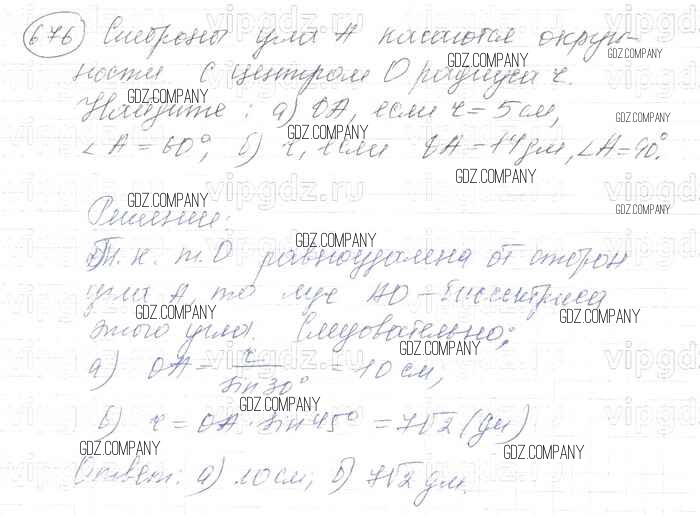 676 Стороны угла A касаются окруж-
ности с центром O радиуса r.
Найдите: а) OA, если r = 5 см,
∠A = 60°, б) r, если OA = 14 дм, ∠A = 90°.
Решение:
Т.к. т. O равноудалена от сторон
угла A, то луч AO – биссектриса
этого угла. Следовательно,
а) OA = r / sin 30° = 10 см,
б) r = OA · sin 45° = 7√2 (дм)
Ответ: а) 10 см; б) 7√2 дм.
GDZ.COMPANY
vipgdz.ru